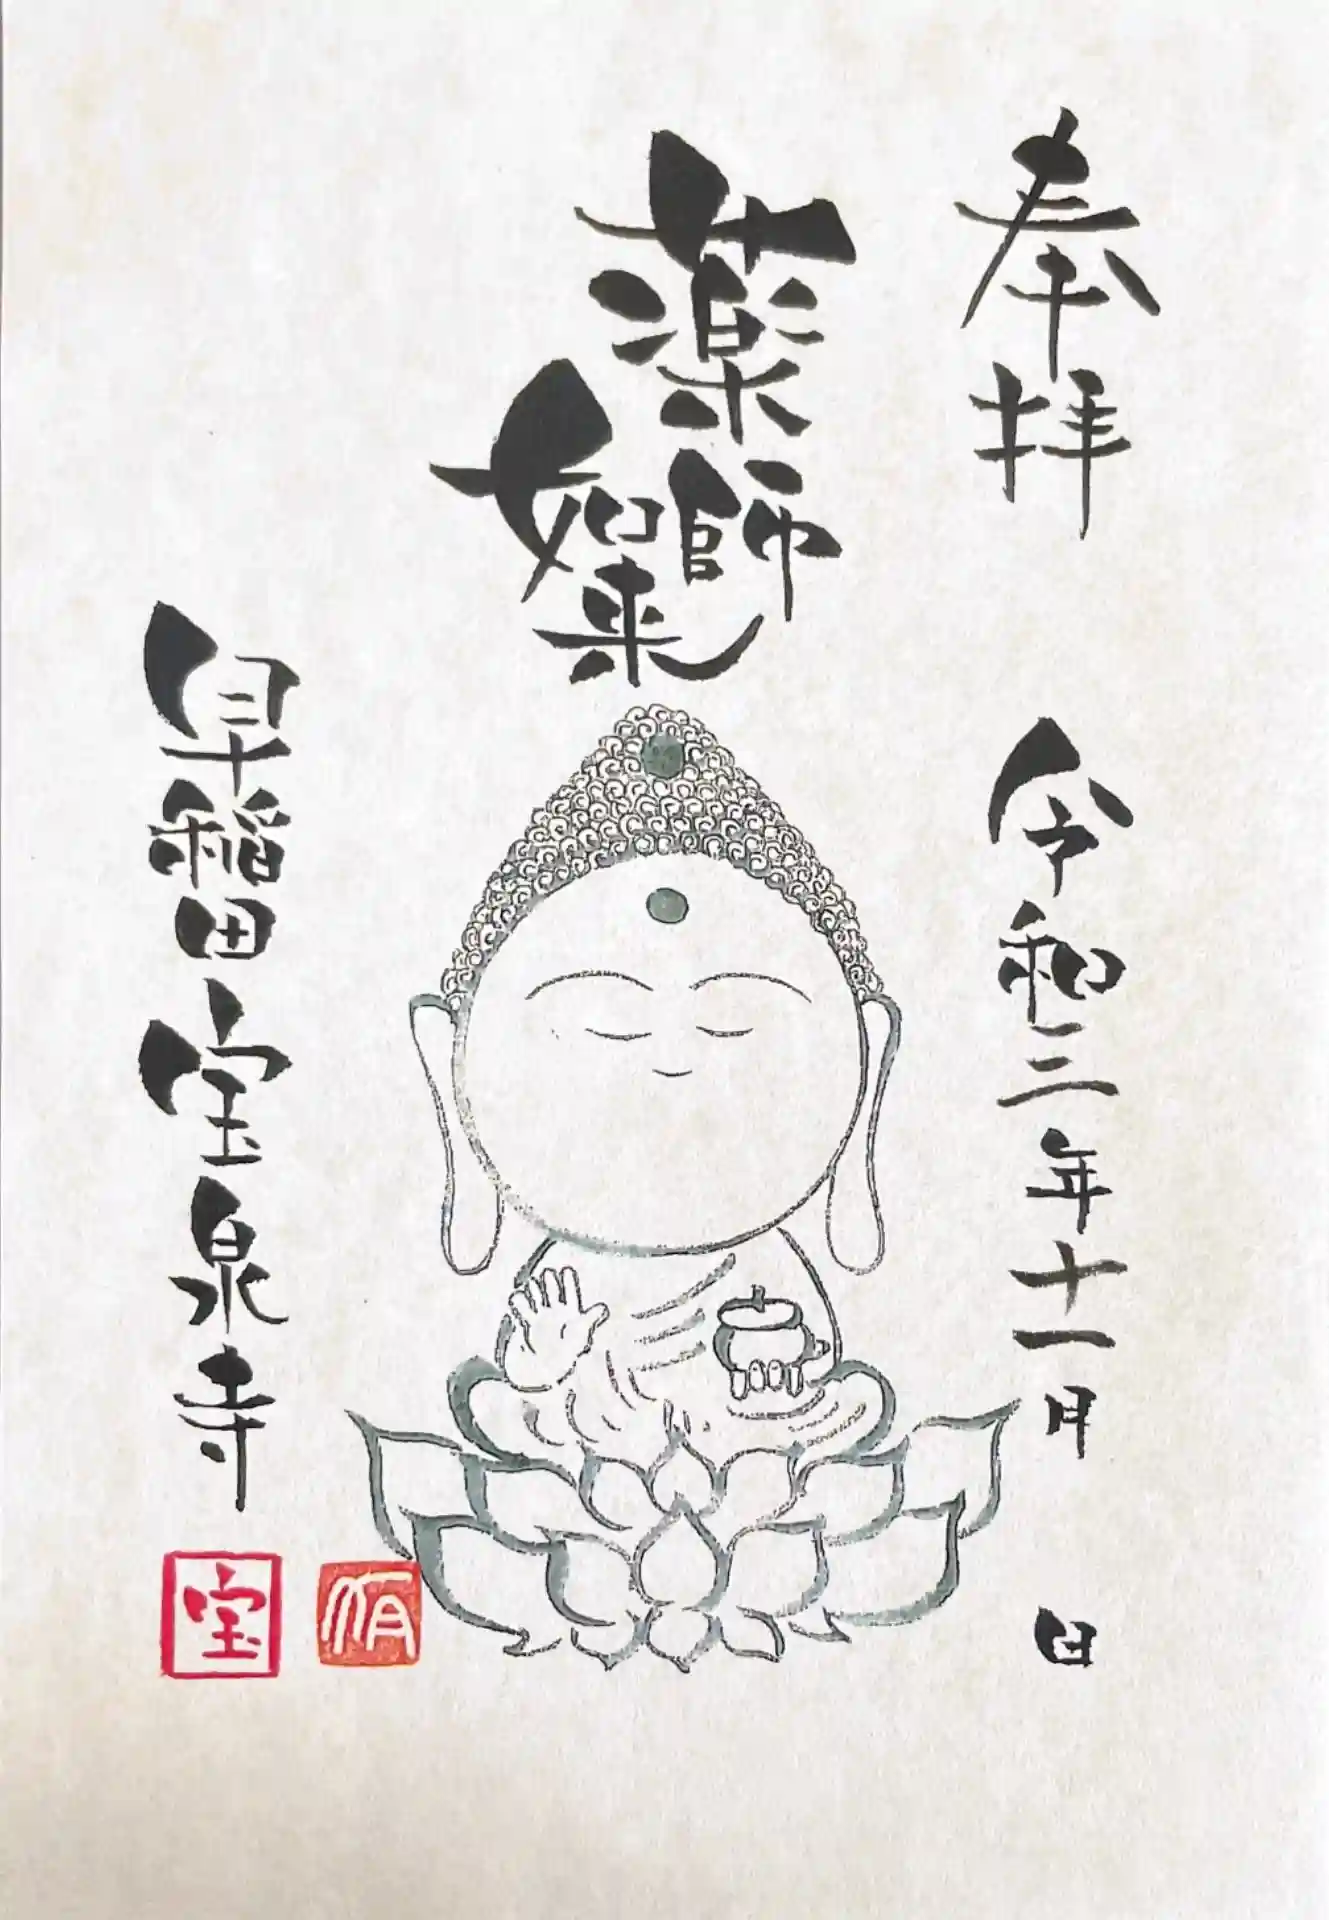 奉拝
令和三年十一月　日
薬師
如来
早稲田宝泉寺
宝